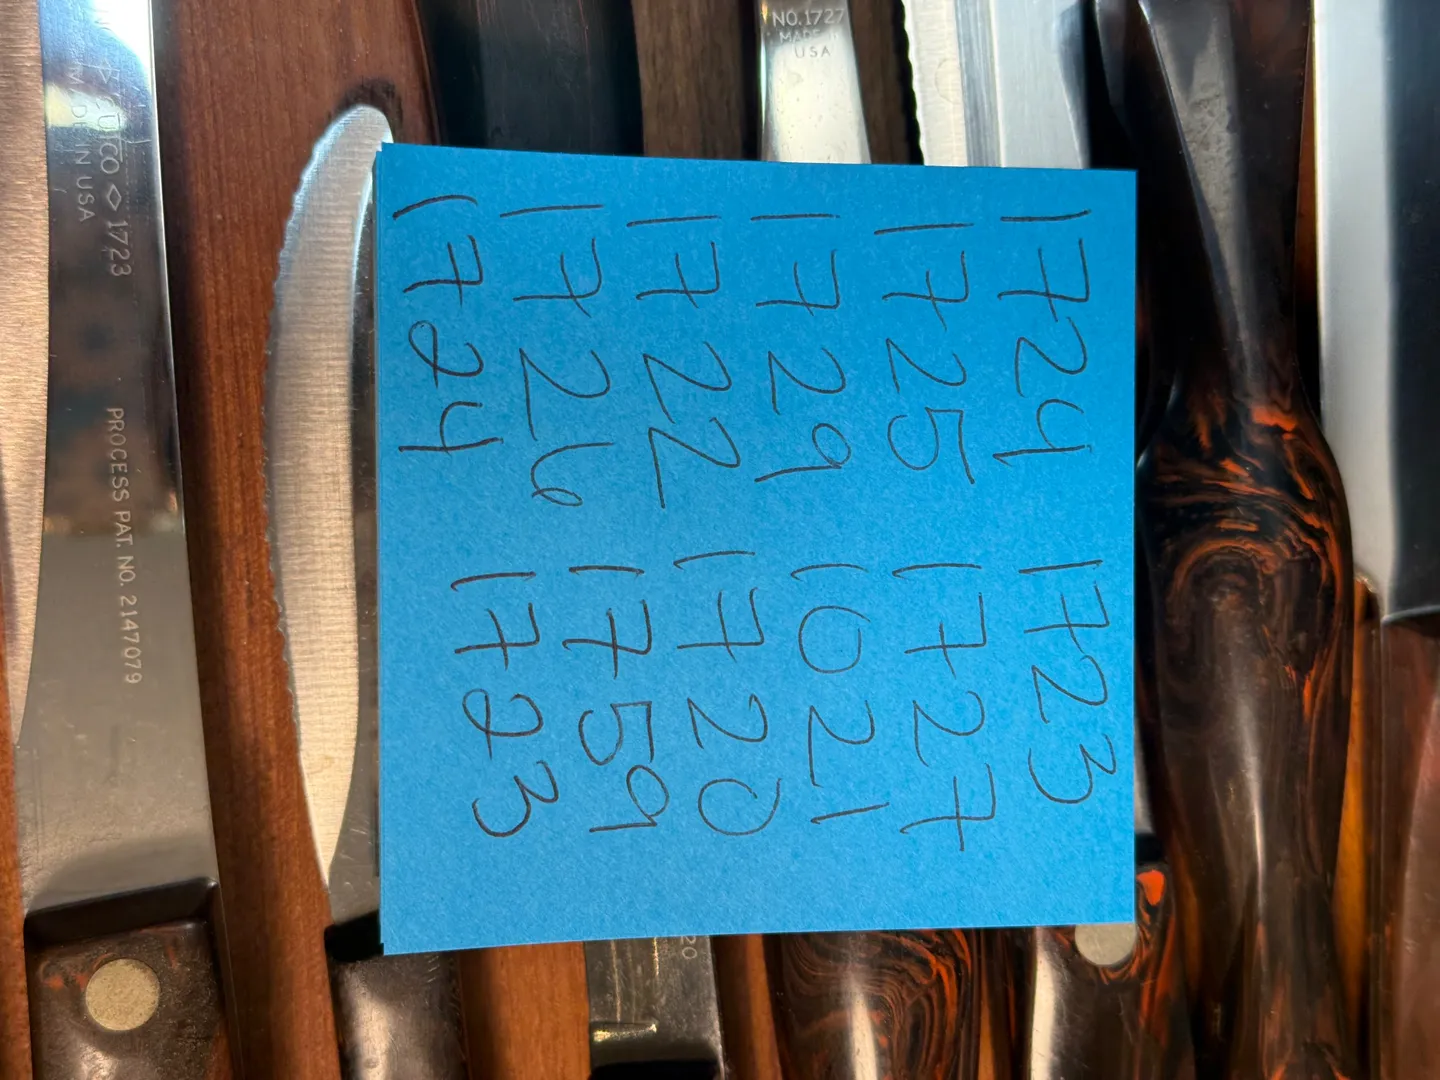 1724 1723
1725 1727
1729 1021
1722 1720
1726 1759
1724 1723
NO. 1727
MADE IN
USA
CUTCO ◇ 1723
MADE IN USA
PROCESS PAT. NO. 2147079
20